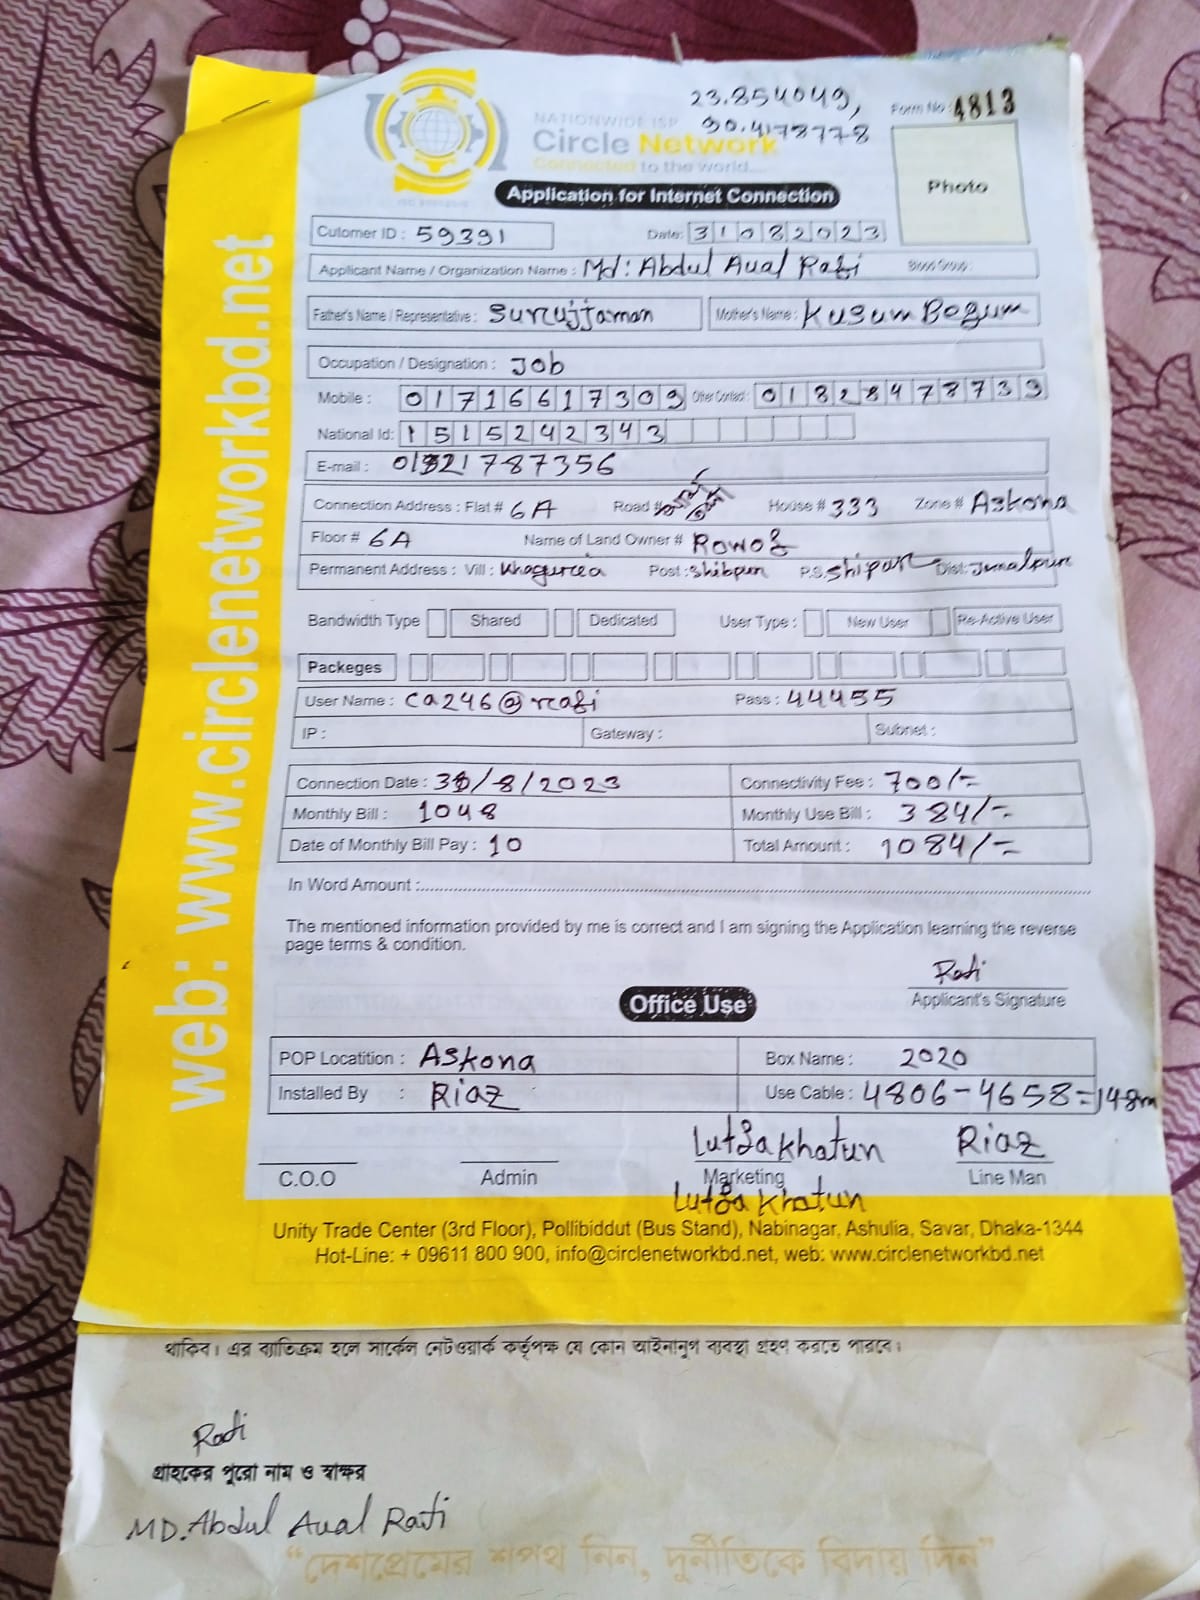 23.854049,
90.4178778
Form No : 4813
NATIONWIDE ISP
Circle Network
Connected to the world....
Photo
Application for Internet Connection
Cutomer ID : 59391 Date: 31082023
Applicant Name / Organization Name : Md: Abdul Aual Rafi Blood Group :
Father's Name / Representative : Surujjaman Mother's Name : Kusum Begum
Occupation / Designation : Job
Mobile : 01716617309 Other Contact : 01828478739
National Id: 1515242343
E-mail : 01321787356
Connection Address : Flat # 6A Road # House # 333 Zone # Askona
Floor # 6A Name of Land Owner # Rowof
Permanent Address : Vill : Post : Shibpur P.S: Shipur Dist: Jamalpur
Bandwidth Type Shared Dedicated User Type : New User Re-Active User
Packeges
User Name : ca246@rafi Pass : 44455
IP : Gateway : Subnet :
Connection Date : 31/8/2023 Connectivity Fee : 700/-
Monthly Bill : 1048 Monthly Use Bill : 384/-
Date of Monthly Bill Pay : 10 Total Amount : 1084/-
In Word Amount :
The mentioned information provided by me is correct and I am signing the Application learning the reverse
page terms & condition.
Rafi
Applicant's Signature
Office Use
POP Locatition : Askona Box Name : 2020
Installed By : Riaz Use Cable : 4806-4658=148m
Lutfa Khatun Riaz
C.O.O Admin Marketing Line Man
Lutfa Khatun
Unity Trade Center (3rd Floor), Pollibiddut (Bus Stand), Nabinagar, Ashulia, Savar, Dhaka-1344
Hot-Line: + 09611 800 900, info@circlenetworkbd.net, web: www.circlenetworkbd.net
web: www.circlenetworkbd.net
থাকিব। এর ব্যতিক্রম হলে সার্কেল নেটওয়ার্ক কর্তৃপক্ষ যে কোন আইনানুগ ব্যবস্থা গ্রহণ করতে পারবে।
Rafi
গ্রাহকের পুরো নাম ও স্বাক্ষর
MD. Abdul Aual Rafi
“দেশপ্রেমের শপথ নিন, দুর্নীতিকে বিদায় দিন”